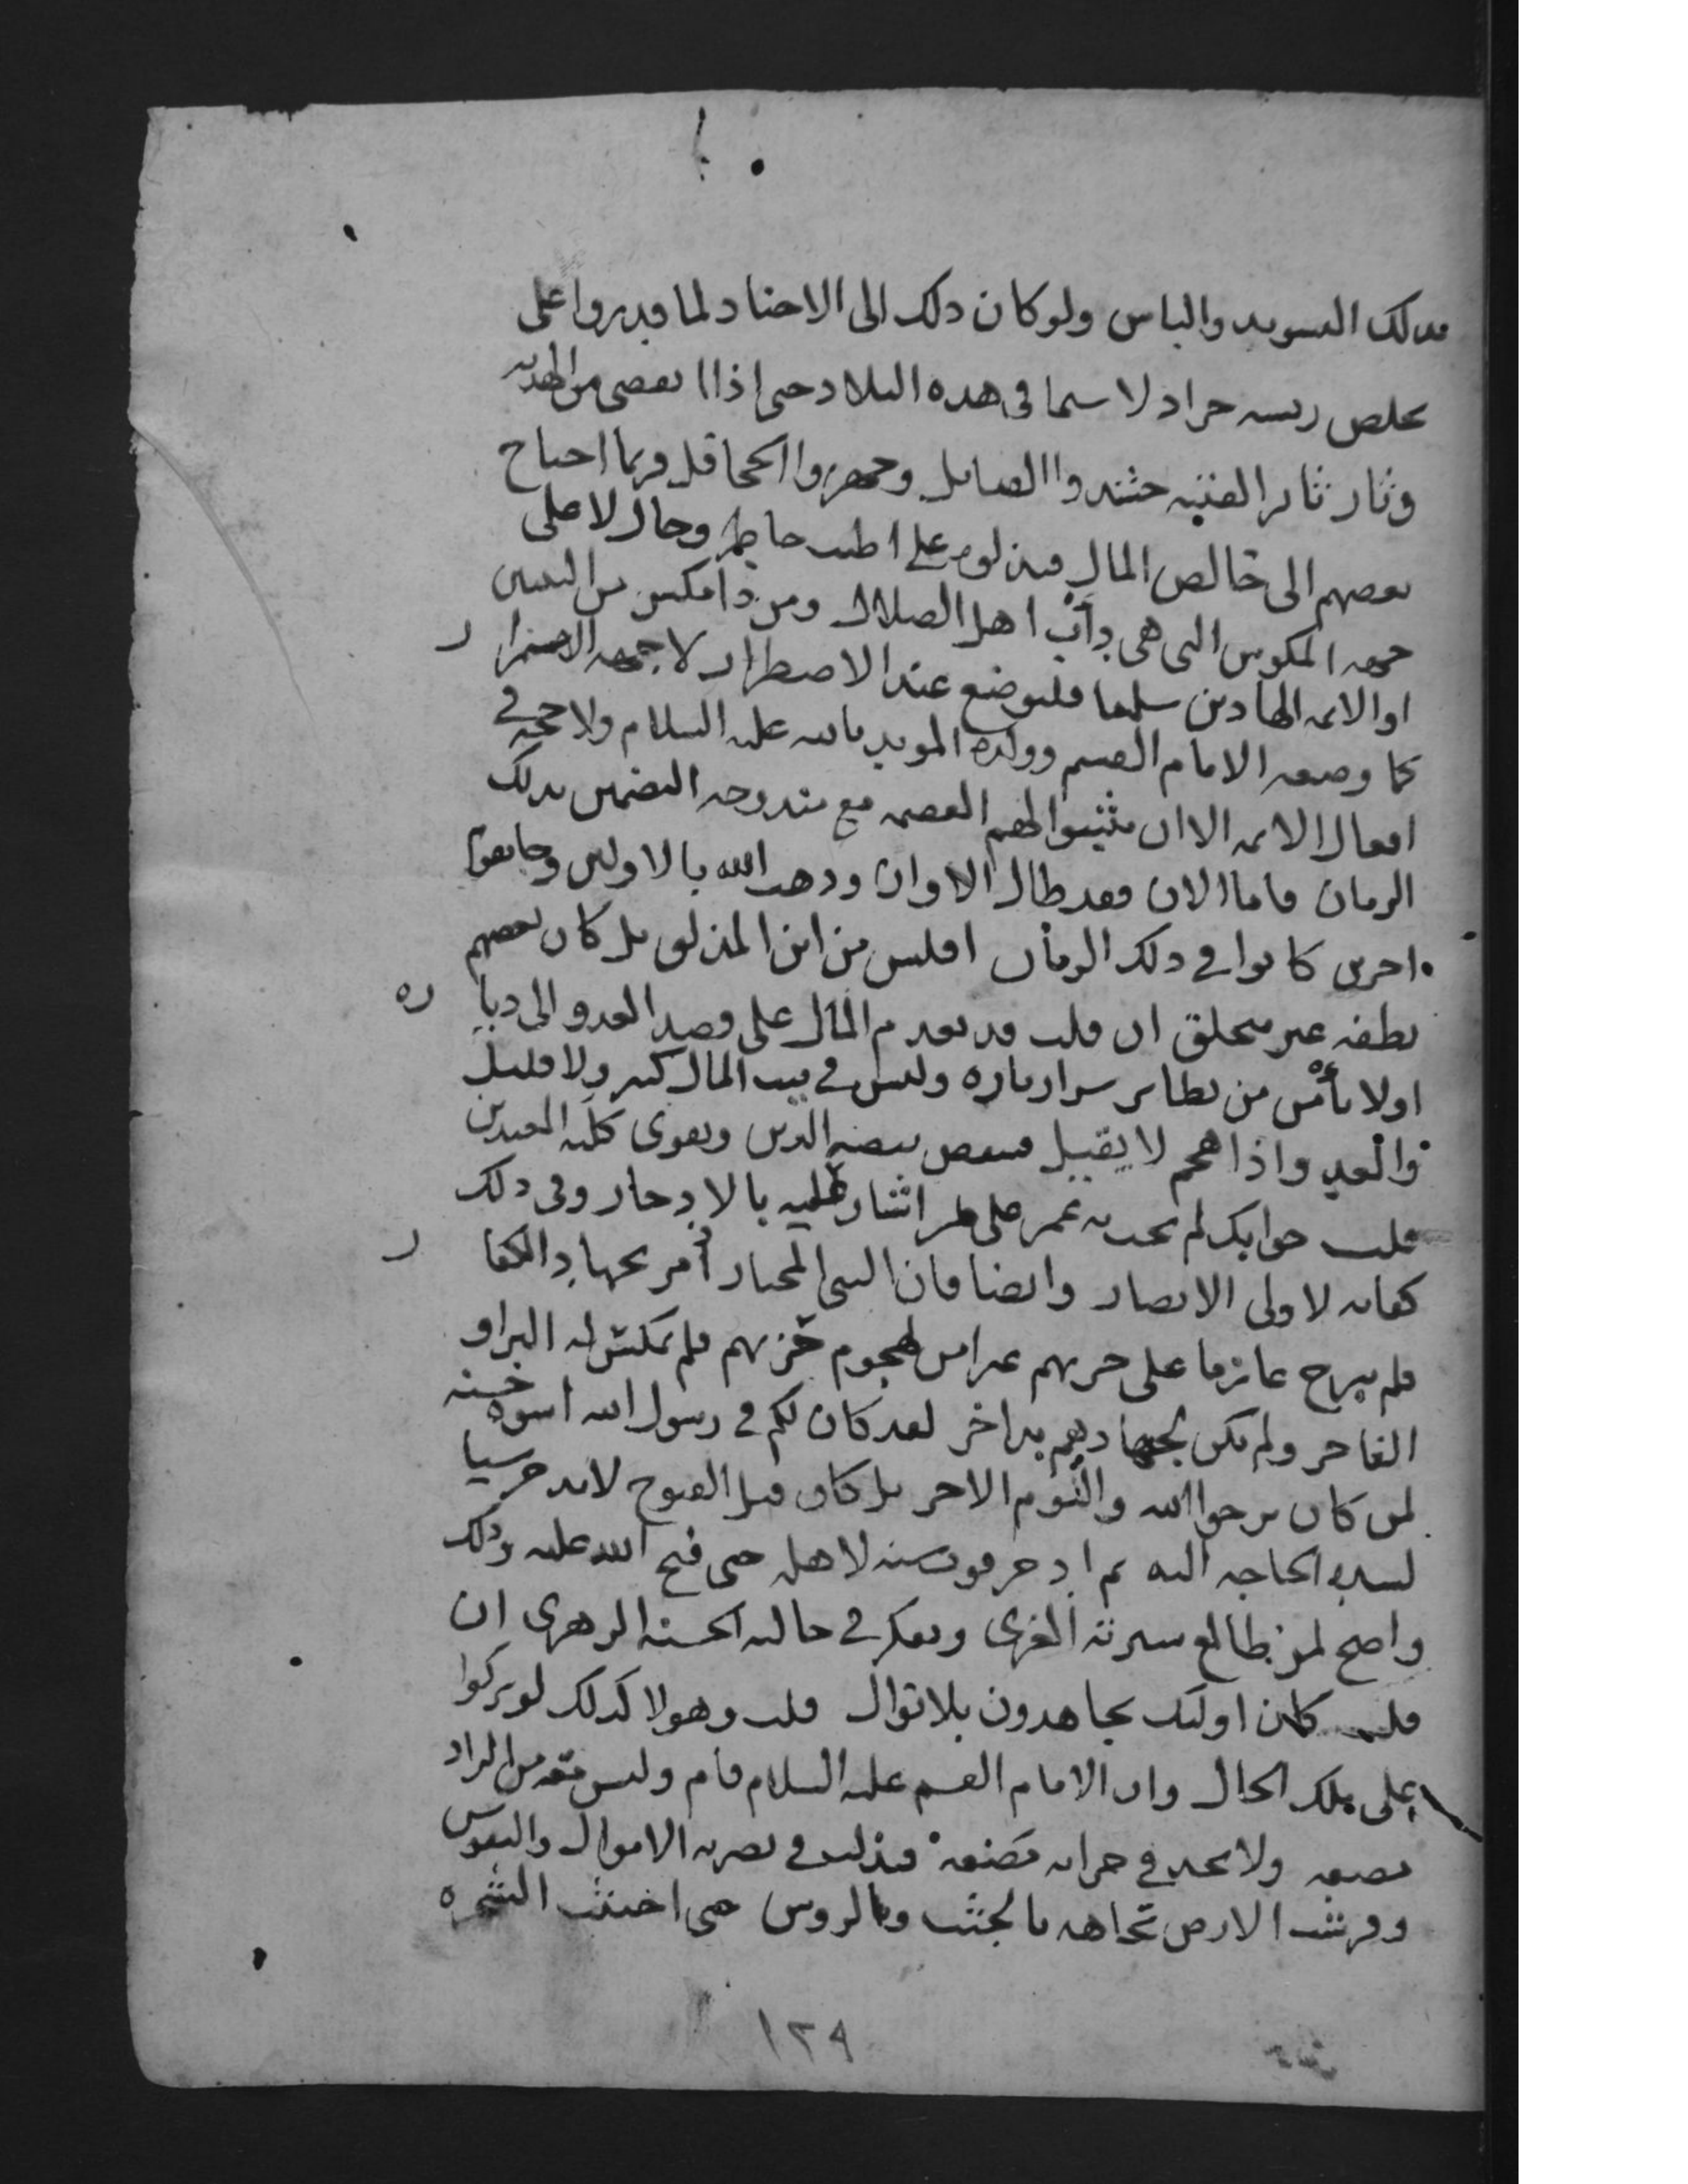 بذلك التسويد والباس ولو كان ذلك الى الاجناد لما قدروا على
تخلص ريسه جراد لا سيما فى هذه البلاد حتى اذا تقضى من الهدنه
وثار ثاىر الفتنه حشدوا القبايل وجهزوا الجحافل وربما احتاج
بعضهم الى خالص المال فبذلوه على اطيب خاطر وحال لا على
جهه المكوس التى هى دأب اهل الضلال ومن ذا مكس من النبيين
او الايمه الهادين سلمنا فليوضع عند الاضطرار لا جهه الاستمرار
كما وضعه الامام القسم وولده المويد بالله عليه السلام ولا حجه فى
افعال الايمه الا ان يثبتوا لهم العصمه مع مندوحه التضمين بذلك
الزمان فاما الان فقد طال الاوان وذهب الله بالاولين وجا بقوم
اخرين كانوا فى ذلك الزمان افلس من ابن المذلق بل كان بعضهم
نطفه غير متخلق ان قلت قد تعدم المال على وصد العدو الى دياره
اولا نأمن من تطاير سرار ناره وليس فى بيت المال كثير ولا قليل
والعدو اذا هجم لا يقيل فتنقض بيضه الدين وتقوى كلمه المعتدين
قلت جوابك لم يجب به عمر على من اشار عليه بالادخار وفى ذلك
كفايه لاولى الابصار وايضا فان النبى المختار أمر بجهاد الكفار
فلم يبرح عازما على حربهم غير امن لهجوم حزبهم فلم يمكس له البر او
الفاجر ولم يكن لجهادهم بداخر لقد كان لكم فى رسول الله اسوه حسنه
لمن كان يرجو الله واليوم الاخر بل كان قبل الفتوح لا يدخر شيا
لسده الحاجه اليه ثم ادخر قوت سنه لاهله حتى فتح الله عليه وذلك
واضح لمن طالع سيرته الغرى وتفكر فى حالته الحسنه الزهرى ان
قلت كان اوليك يجاهدون بلا نوال قلت وهولا كذلك لو تركوا
على تلك الحال وان الامام القسم عليه السلام قام وليس معه من الزاد
مضغه ولا يجد فى خزانه فبذلت فى نصرته الاموال والنفوس
وفرشت الارض تجاهه بالجثث وبالروس حتى اجتثت الشجره
١٢٩